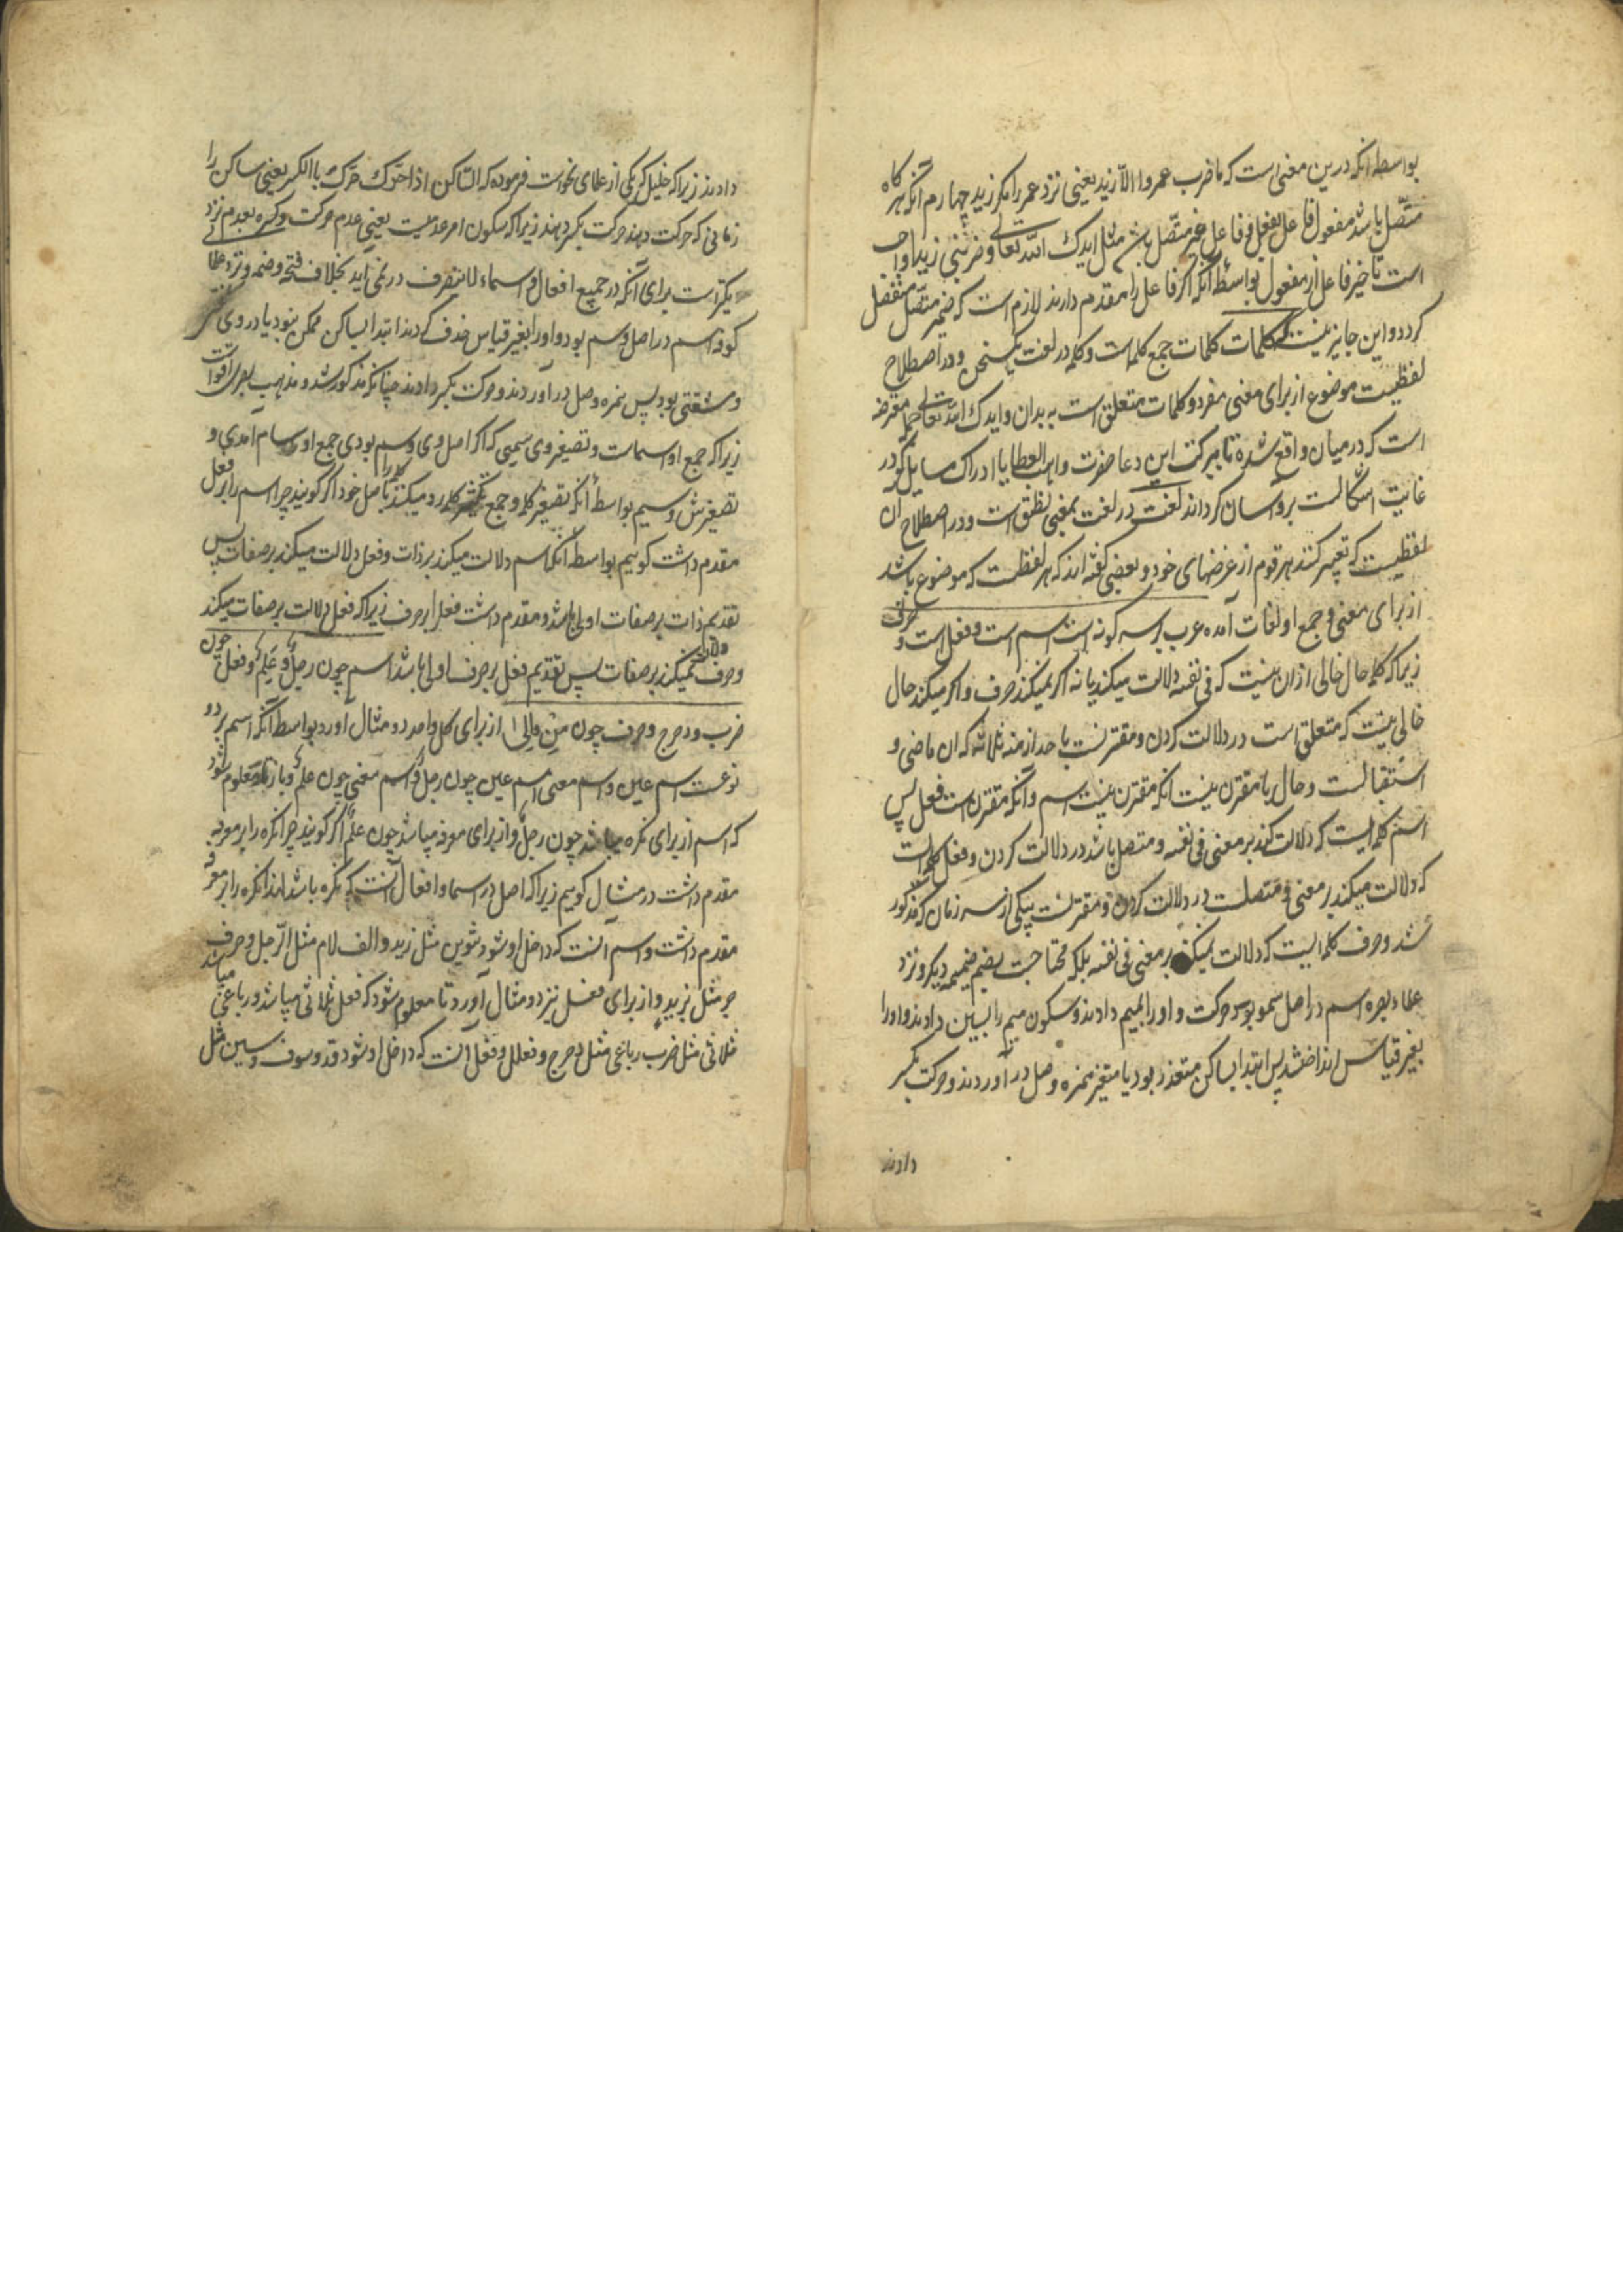 بواسطه انکه درین معنی است که ما ضرب عمروا الا زید یعنی نزد عمر را مکر زید چهارم انکه هر کاه
متصل باشد مفعول فاعل بفعل و فاعل غیر متصل مثل ایدک الله تعالی و ضربنی زید واجب
است تاخیر فاعل از مفعول بواسطه آنکه اکر فاعل را مقدم دارند لازم است که ضمیر متصل منفصل
کردد و این جایز نیست کلمات کلمات جمع کلمه است و کلمه در لغت یکسخن و در اصطلاح
لفظیست موضوع از برای معنی مفرد و کلمات متعلق است به بدان و ایدک الله تعالی جمله معترضه
است که در میان واقع شده تا ببرکت این دعا حضرت واهب العطایا ادراک مسایل که در
غایت اشکالست برو آسان کرداند لغت در لغت بمعنی نطق است و در اصطلاح آن
لفظیست که تعبیر کنند هر قوم از غرضهای خود و بعضی کفته اند که هر لفظست که موضوع باشد
از برای معنی و جمع او لغات آمده عرب بر سه کونه است اسم است و فعل است و حرف
زیرا که کلمه حال خالی از ان نیست که فی نفسه دلالت میکند یا نه اکر نمیکند حرف و اکر میکند حال
خالی نیست که متعلق است در دلالت کردن و مقترنست باحد ازمنه ثلاثه که ان ماضی و
استقبالست و حال یا مقترن نیست انکه مقترن نیست اسم و آنکه مقترن است فعل پس
اسم کلمه ایست که دلالت کند بر معنی فی نفسه و متصل باشد در دلالت کردن و فعل کلمه است
که دلالت میکند بر معنی و متصلست در دلالت کردن و مقترنست بیکی از سه زمان که مذکور
شد و حرف کلمه ایست که دلالت نمیکند بر معنی فی نفسه بلکه محتاجست بضم ضمیمه دیکر و نزد
علماء بصره اسم در اصل سمو بوده حرکت واو را بمیم دادند و سکون میم را بسین دادند و او را
بغیر قیاس انداختند پس ابتدا بساکن متعذر بود یا متعسر همزه وصل در آوردند و حرکت بکسر
دادند
دادند زیرا که خلیل که یکی از علمای نحوست فرموده که الساکن اذا حرک حرک باالکسر یعنی ساکن را
زمانی که حرکت دهند حرکت بکسر دهند زیرا که سکون امر عدمیست یعنی عدم حرکت و کسره بعدم نزد
یکترست برای آنکه در جمیع افعال و اسماء لاینصرف در نمی اید بخلاف فتحه و ضمه و نزد علما
کوفه اسم در اصل وسم بود و او را بغیر قیاس حذف کردند ابتدا بساکن ممکن نبود یا در وی
و مشقتی بود پس همزه وصل در آوردند و حرکت بکسر دادند چنانکه مذکور شد و مذهب بصری اقواست
زیرا که جمع او اسمات و تصغیر وی سمیی که اکر اصل وی وسم بودی جمع او وسام امدی و
تصغیرش وسیم بواسطه انکه تصغیر کلمه و جمع تکسیر کلمه را رد میکند باصل خود اکر کویند چرا اسم را بر فعل
مقدم داشت کوییم بواسطه آنکه اسم دلالت میکند بر ذات و فعل دلالت میکند بر صفات پس
تقدیم ذات بر صفات اولی باشد و مقدم داشت فعل را بر حرف زیرا که فعل دلالت بر صفات میکند
و حرف دلالت نمیکند بر صفات پس تقدیم فعل بر حرف اولی باشد اسم چون رجل و علم و فعل چون
ضرب و دحرج و حرف چون من و الی از برای کل واحد دو مثال اورد بواسطه آنکه اسم بر دو
نوعست اسم عین و اسم معنی اسم عین چون رجل و اسم معنی چون علم و باز تا معلوم شود
که اسم از برای نکره میباشد چون رجل و از برای معرفه میباشد چون علم اکر کویند چرا نکره را بر معرفه
مقدم داشت در مثال کوییم زیرا که اصل در اسما و افعال آنست که نکره باشد لهذا نکره را بر معرفه
مقدم داشت و اسم آنست که داخل او شود تنوین مثل زید و الف لام مثل الرجل و حرف
جر مثل بزید و از برای فعل نیز دو مثال آورد تا معلوم شود که فعل ثلاثی میباشد و رباعی میباشد
ثلاثی مثل ضرب رباعی مثل دحرج و فعلل و فعل آنست که داخل او شود قد و سوف و سین مثل